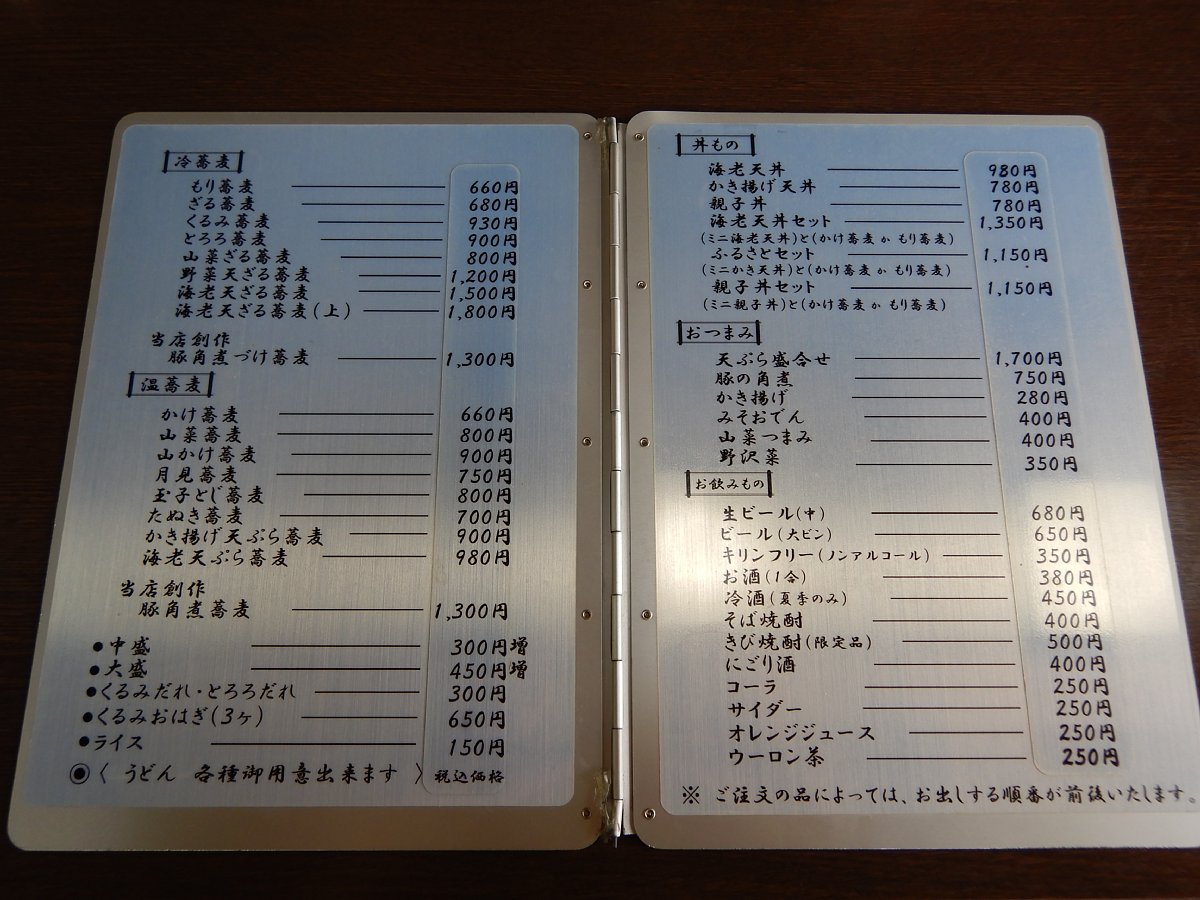 冷蕎麦
もり蕎麦 660円
ざる蕎麦 680円
くるみ蕎麦 930円
とろろ蕎麦 900円
山菜ざる蕎麦 800円
野菜天ざる蕎麦 1,200円
海老天ざる蕎麦 1,500円
海老天ざる蕎麦(上) 1,800円
当店創作
豚角煮づけ蕎麦 1,300円
温蕎麦
かけ蕎麦 660円
山菜蕎麦 800円
山かけ蕎麦 900円
月見蕎麦 750円
玉子とじ蕎麦 800円
たぬき蕎麦 700円
かき揚げ天ぷら蕎麦 900円
海老天ぷら蕎麦 980円
当店創作
豚角煮蕎麦 1,300円
●中盛 300円増
●大盛 450円増
●くるみだれ・とろろだれ 300円
●くるみおはぎ(3ヶ) 650円
●ライス 150円
◉〈 うどん 各種御用意出来ます 〉税込価格
丼もの
海老天丼 980円
かき揚げ天丼 780円
親子丼 780円
海老天丼セット 1,350円
(ミニ海老天丼)と(かけ蕎麦 か もり蕎麦)
ふるさとセット 1,150円
(ミニかき天丼)と(かけ蕎麦 か もり蕎麦)
親子丼セット 1,150円
(ミニ親子丼)と(かけ蕎麦 か もり蕎麦)
おつまみ
天ぷら盛合せ 1,700円
豚の角煮 750円
かき揚げ 280円
みそおでん 400円
山菜つまみ 400円
野沢菜 350円
お飲みもの
生ビール(中) 680円
ビール(大ビン) 650円
キリンフリー(ノンアルコール) 350円
お酒(1合) 380円
冷酒(夏季のみ) 450円
そば焼酎 400円
きび焼酎(限定品) 500円
にごり酒 400円
コーラ 250円
サイダー 250円
オレンジジュース 250円
ウーロン茶 250円
※ ご注文の品によっては、お出しする順番が前後いたします。